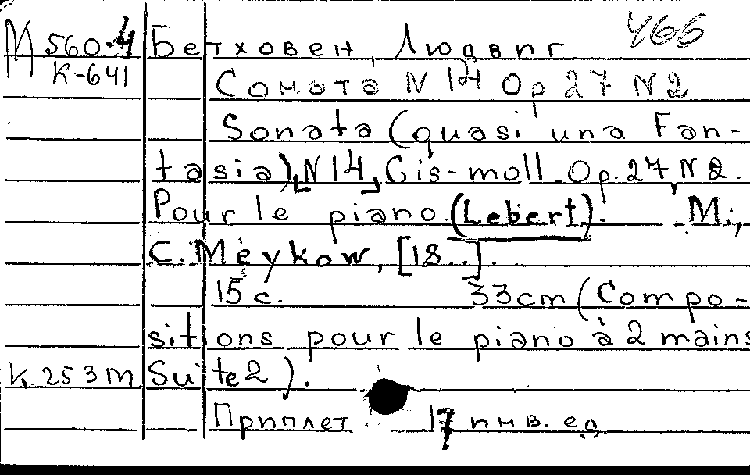 М 560.4 Бетховен, Людвиг 466
К-641 Соната N 14 Op 27 N 2
Sonata (quasi una Fan-
tasia), [N 14,] Cis-moll. Op. 27, N 2.
Pour le piano. (Lebert). М.,
C. Meykow, [18..].
15 с. 33cm (Compo-
sitions pour le piano à 2 mains
К 253м Suite 2).
Приплет 17 инв. ед